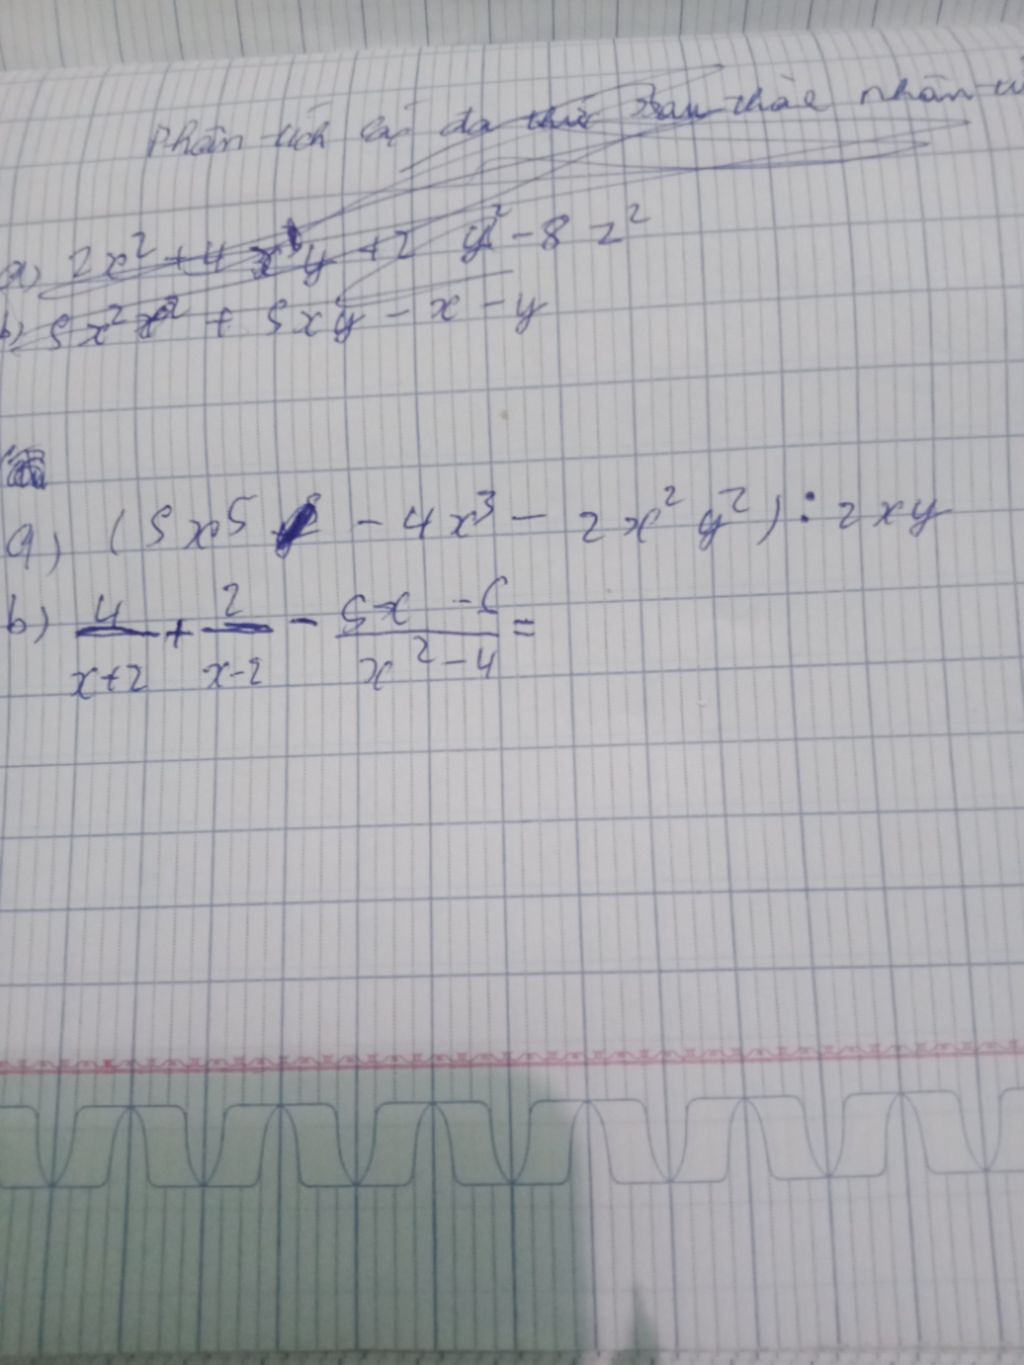 Phân tích các đa thức sau thành nhân tử
a) 2x² + 4xy + 2y² - 8z²
b) 5x² + 5xy - x - y
a) (5x⁵ - 4x³ - 2x²y²) : 2xy
b) 4/(x+2) + 2/(x-2) - (5x - 5)/(x² - 4) =